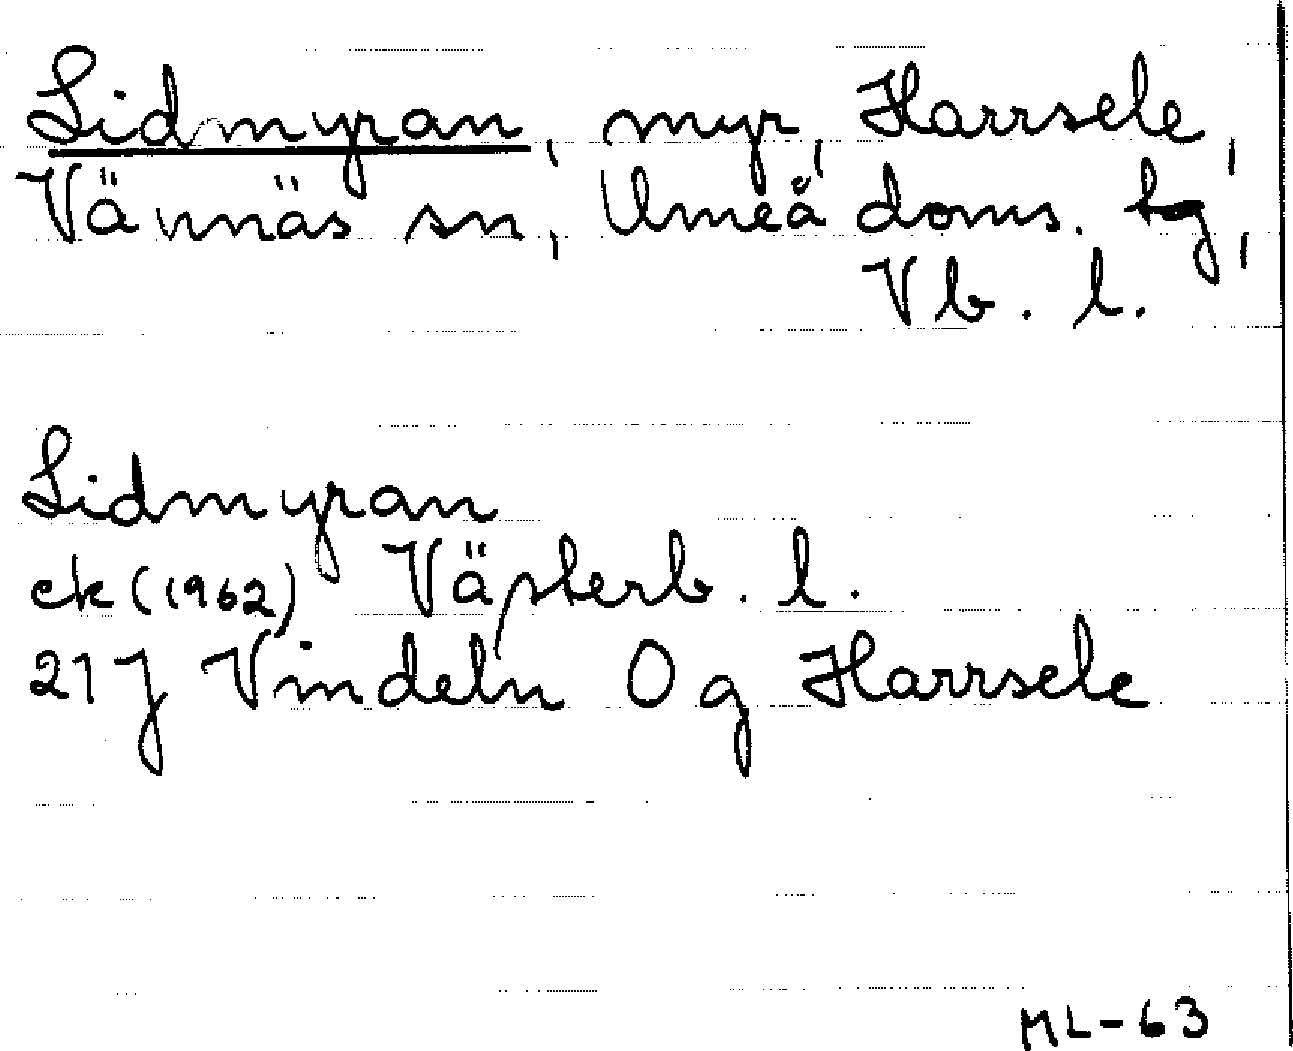 Lidmyran, myr, Harrsele,
Vännäs sn, Umeå doms. tg,
Vb. l.
Lidmyran
ek (1962) Västerb. l.
21 J Vindeln 0 g Harrsele
ML-63